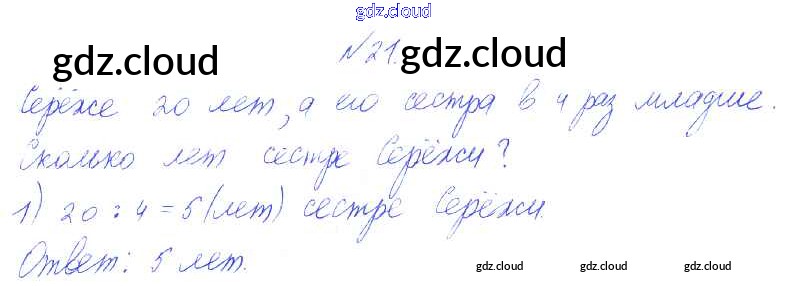 gdz.cloud
№21.
gdz.cloud gdz.cloud
Серёже 20 лет, а его сестра в 4 раз младше.
Сколько лет сестре Серёжи?
1) 20 : 4 = 5 (лет) сестре Серёжи.
Ответ: 5 лет.
gdz.cloud gdz.cloud gdz.cloud